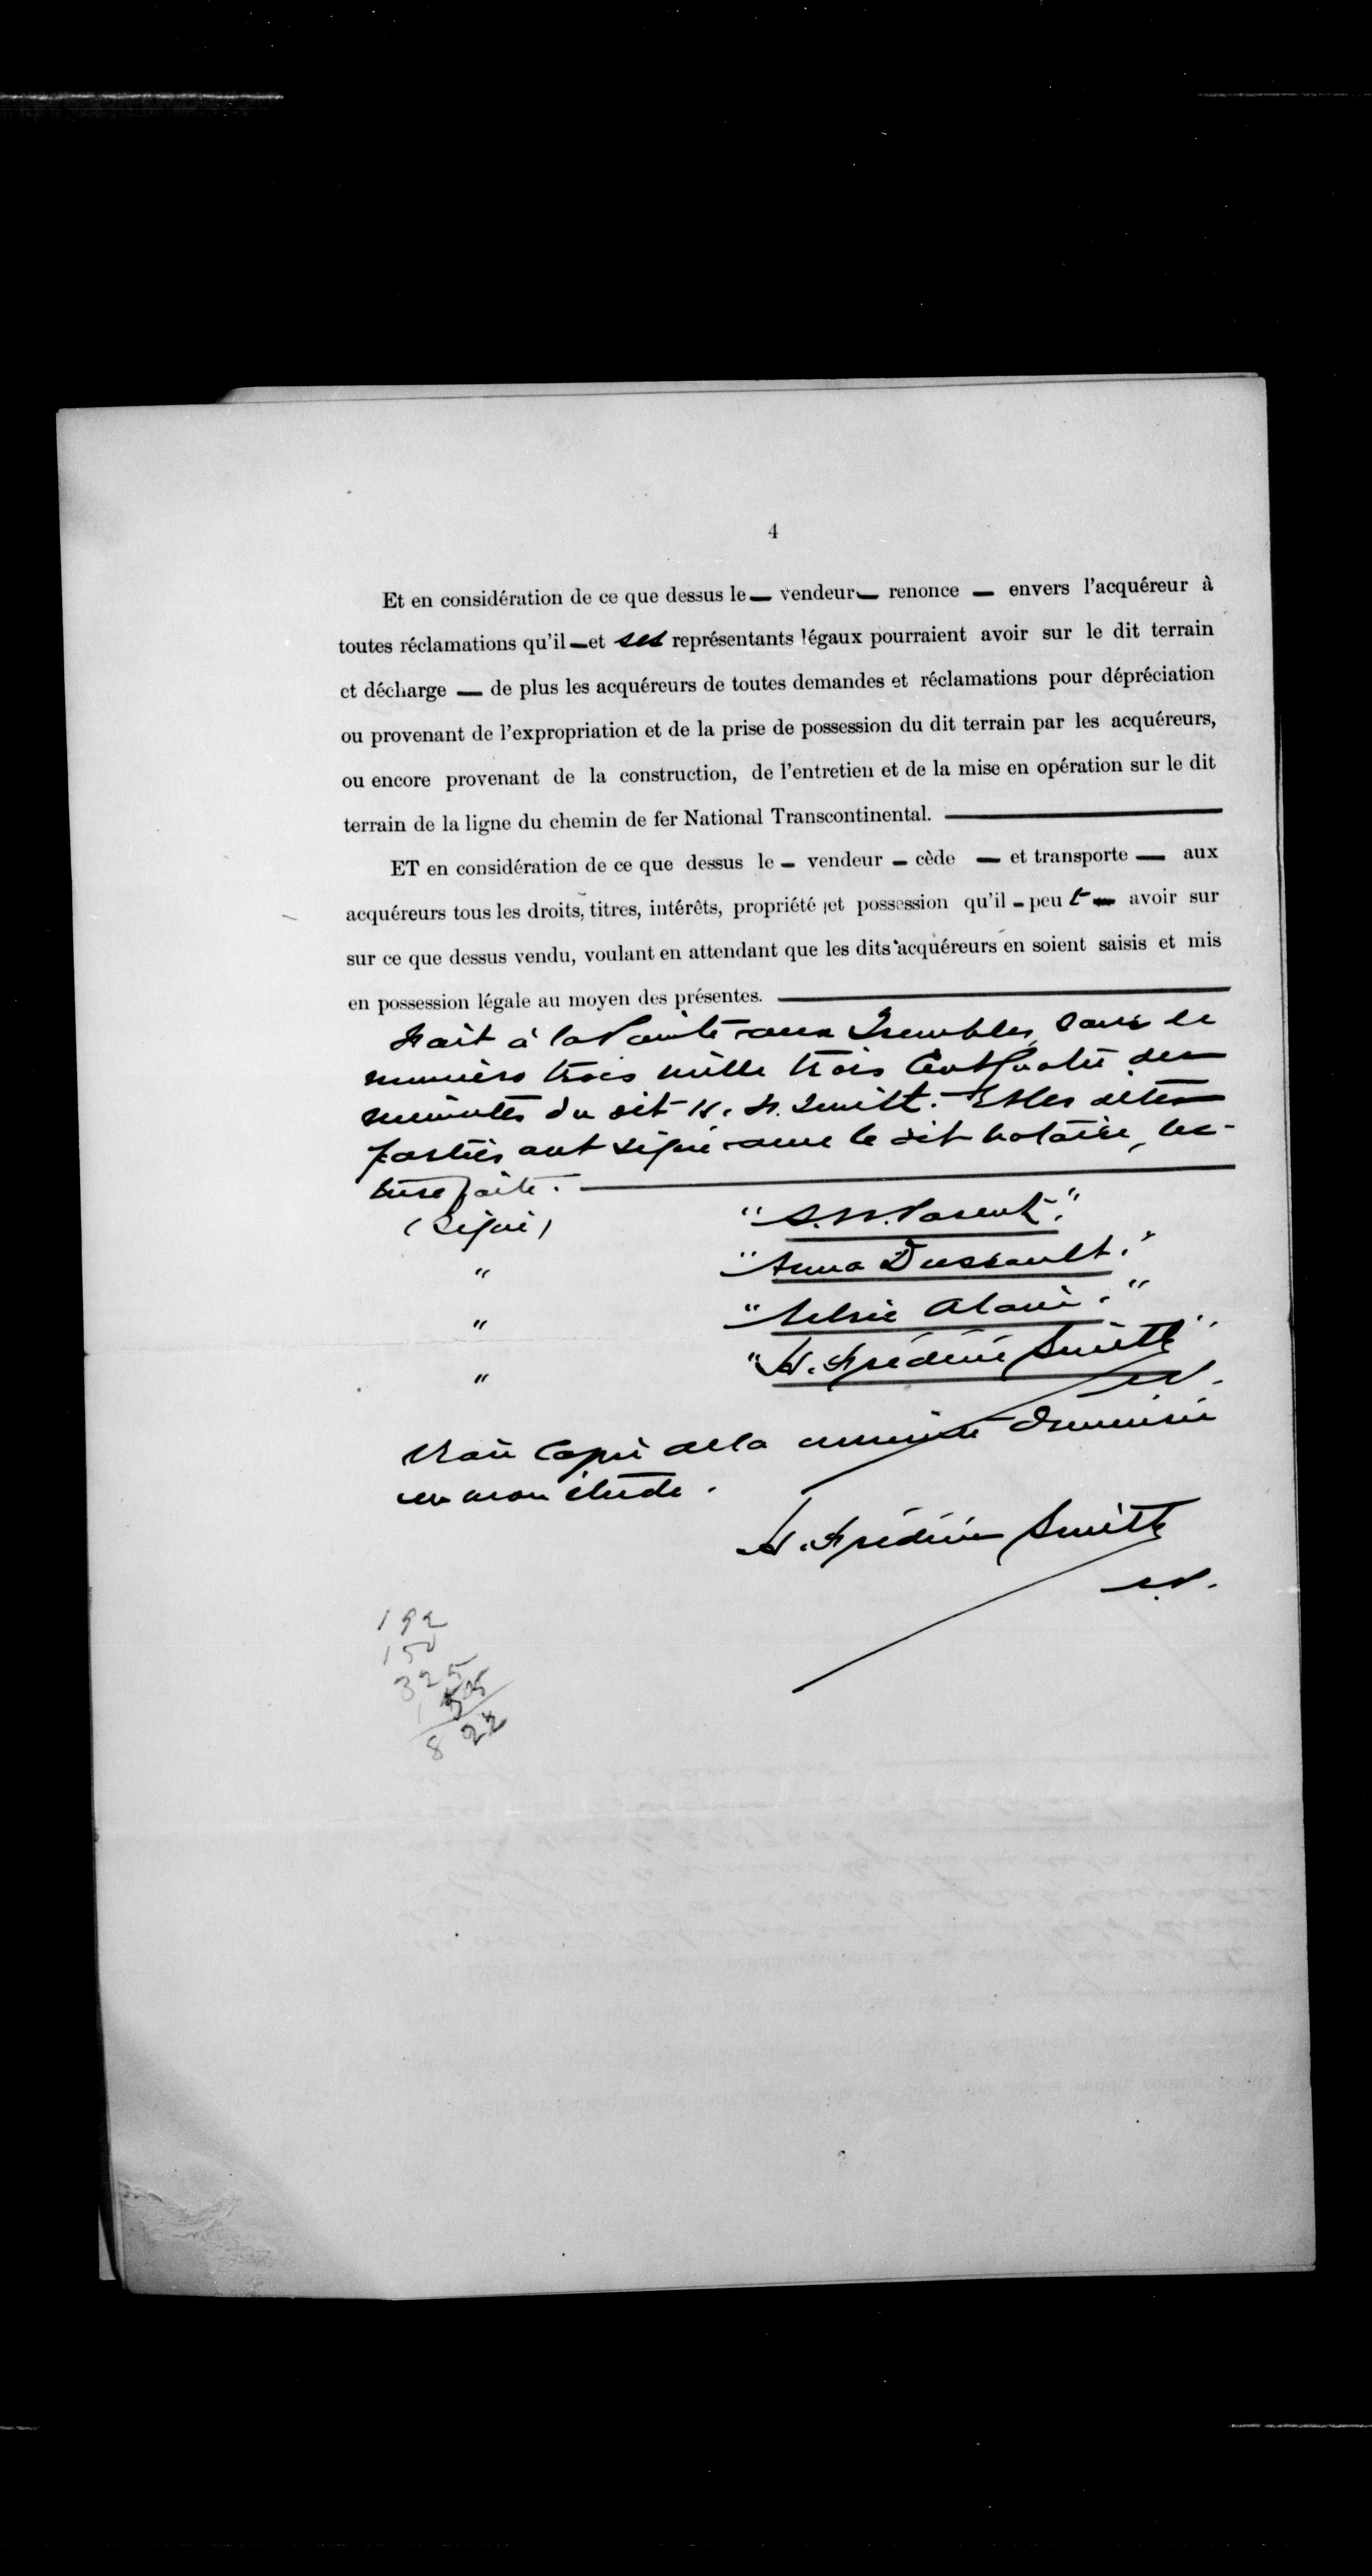 4
Et en considération de ce que dessus le — vendeur — renonce — envers l'acquéreur à
toutes réclamations qu'il — et ses représentants légaux pourraient avoir sur le dit terrain
et décharge — de plus les acquéreurs de toutes demandes et réclamations pour dépréciation
ou provenant de l'expropriation et de la prise de possession du dit terrain par les acquéreurs,
ou encore provenant de la construction, de l'entretien et de la mise en opération sur le dit
terrain de la ligne du chemin de fer National Transcontinental. —
ET en considération de ce que dessus le — vendeur — cède — et transporte — aux
acquéreurs tous les droits, titres, intérêts, propriété et possession qu'il — peut — avoir sur
sur ce que dessus vendu, voulant en attendant que les dits acquéreurs en soient saisis et mis
en possession légale au moyen des présentes. —
Fait à la Pointe aux Trembles, sous le
numéro trois mille trois cent quatre des
minutes du dit H. F. Smith. Et les dites
parties ont signé avec le dit notaire, lec-
ture faite. —
(Signé) "S. N. Parent."
" "Anna Dussault."
" Alain."
" "H. Frédéric Smith"
N.P.
Vraie Copie de la minute demeurée
en mon étude.
H. Frédéric Smith
N.P.
192
150
325
8 22